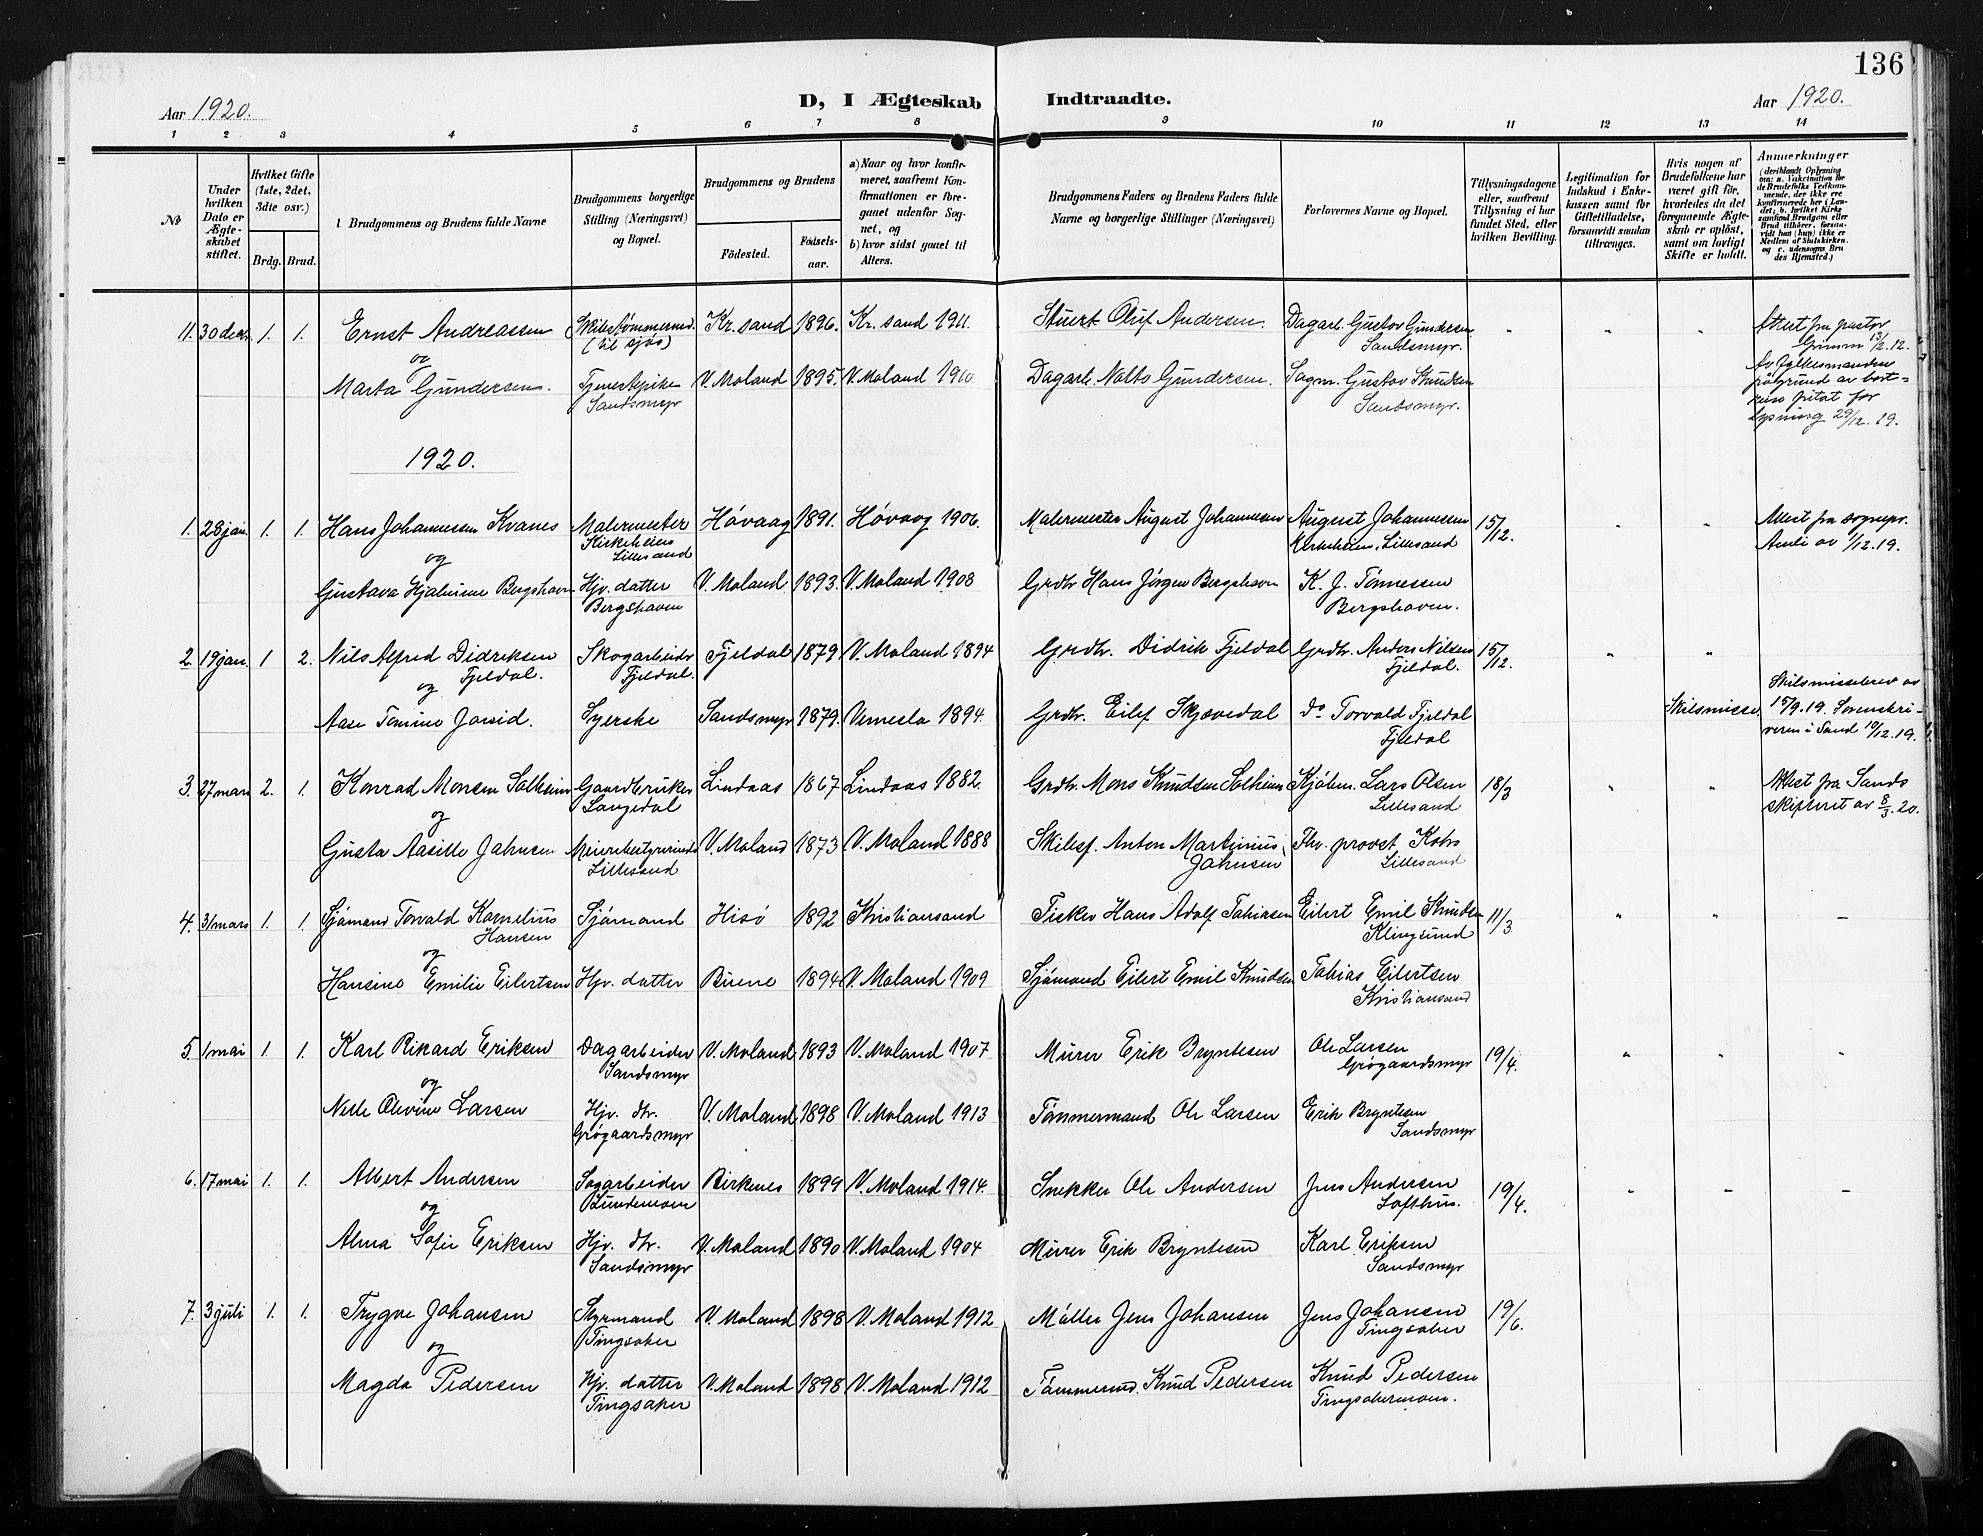 136
Aar 1920.
D, I Ægteskab Indtraadte.
Aar 1920.
1 2 3 4 5 6 7 8 9 10 11 12 13 14
No
Under hvilken Dato er Ægteskabet stiftet.
Hvilket Gifte (1ste, 2det, 3die osv.)
Brdg. Brud.
Brudgommens og Brudens fulde Navne
Brudgommens borgerlige Stilling (Næringsvei) og Bopæl.
Brudgommens og Brudens
Fødested. Fødselsaar.
a) Naar og hvor konfirmeret, saafremt Konfirmationen er foregaaet udenfor Sognet, og
b) hvor sidst gaaet til Alters.
Brudgommens Faders og Brudens Faders fulde Navne og borgerlige Stillinger (Næringsvei)
Forlovernes Navne og Bopæl.
Tillysningsdagene eller, saafremt Tillysning ei har fundet Sted, efter hvilken Bevilling.
Legitimation for Indskud i Enkekassen samt for Giftetilladelse, forsaavidt saadan tiltrænges.
Hvis nogen af Brudefolkene har været gift før, hvorledes da det foregaaende Ægteskab er opløst, samt om lovligt Skifte er holdt.
Anmerkninger (deriblandt Oplysning om: a. Vakcination for de Brudefolks Vedkommende, der ikke ere konfirmerede her i Landet; b. hvilket Kirkesamfund Brudgom eller Brud tilhører, forsaavidt han (hun) ikke er Medlem af Statskirken. og c. udensogns Brudes Hjemsted.)
11. 30 decbr. 1. 1. Ernst Andreassen Skibstømmermd. Kr.sand 1896. Kr.sand 1911. Stuert Oluf Andersen. Dagarb. Gustov Gundersen " " " Attest fra pastor
og (til sjøs) Sandsmyr. Grimm 13/2.12.
Marta Gundersen. Tjenestepike V. Moland 1895. V. Moland 1910 Dagarb. Gundersen. Sagm. Gustov Knudsen Av fylkesmanden
Sandsmyr Sandsmyr. pålgrund av bort=
reise fritat for
lysning 29/12.19.
1920.
1. 28 jan. 1. 1. Hans Johannessen Kvanes Malermester Høvaag 1891. Høvaag 1906. Malermester August Johannessen August Johannessen 15/12. " " Attest fra sognepr.
og Kirkeheien Lillesand Kirkeheien, Lillesand av 1/12.19.
Gustava Hjalmine Bergshaven Hjv. datter V. Moland 1893. V. Moland 1908 Grdbr. Hans Jørgen Bergshaven K. J. Tønnessen
Bergshaven Bergshaven.
2. 19 jan. 1 2. Nils Alfred Didriksen Skogarbeider Fjeldal 1879. V. Moland 1894 Grdbr. Didrik Fjeldal Grdbr. Anders Nilsen 15/12. " "
Fjeldal. Fjeldal. Fjeldal.
og Skilsmissebrev av
Aase Tomine Syerske Sandsmyr 1879. Vennesla 1894. Grdbr. Eilef Skjævedal Do Torvald Fjeldal Skilsmisse. 15/9.19. Sorenskri-
Fjeldal veren i Sand 10/12.19.
3. 27 mars 2. 1. Konrad Monsen Solheim Gaardbruker Lindaas 1867 Lindaas 1882. Grdbr. Mons Knudsen Solheim Kjøbm. Lars Olsen 18/3 " " Attest fra Sands
og Langedal Lillesand skifteret av 8/3.20.
Gusta Jahnsen Meieribestyrerinde V. Moland 1873 V. Moland 1888 Skibsf. Anton Martinius Thv. provst Kobro
Lillesand Jahnsen Lillesand
4. 31 mars 1. 1. Sjømand Torvald Kornelius Sjømand Hisø 1892 Kristiansand Fisker Hans Adolf Tobiasen Eilert Emil Knudsen 11/3 " " –
Hansen Klingsund
og
Hansine Emilie Eilertsen Hjv. datter Buene 1894 V. Moland 1909 Sjømand Eilert Emil Knudsen Tobias Eilertsen
Kristiansand
5. 1 mai 1. 1. Karl Rikard Eriksen Dagarbeider V. Moland 1893 V. Moland 1907 Murer Erik Bryntesen Ole Larsen 19/4. " " "
og Sandsmyr Grøgaardsmyr
Nelle Olevine Larsen Hjv. dtr. V. Moland 1898 V. Moland 1913 Tømmermand Ole Larsen Erik Bryntesen
Grøgaardsmyr Sandsmyr
6. 17 mai 1. 1. Albert Andersen Sagarbeider Birkenes 1899 V. Moland 1914. Snekker Ole Andersen Jens Andersen 19/4. " – –
og Lofthus.
Alma Sofie Eriksen Hjv. dtr. V. Moland 1890 V. Moland 1904 Murer Erik Bryntesen Karl Eriksen
Sandsmyr Sandsmyr
7. 3 juli 1. 1. Trygve Johansen Styrmand V. Moland 1898 V. Moland 1912 Møller Jens Johansen Jens Johansen 19/6.
og Tingsaker Tingsaker
Magda Pedersen Hjv. datter V. Moland 1898 V. Moland 1912 Tømmermd. Knud Pedersen Knud Pedersen
Tingsaker Tingsakermoen.